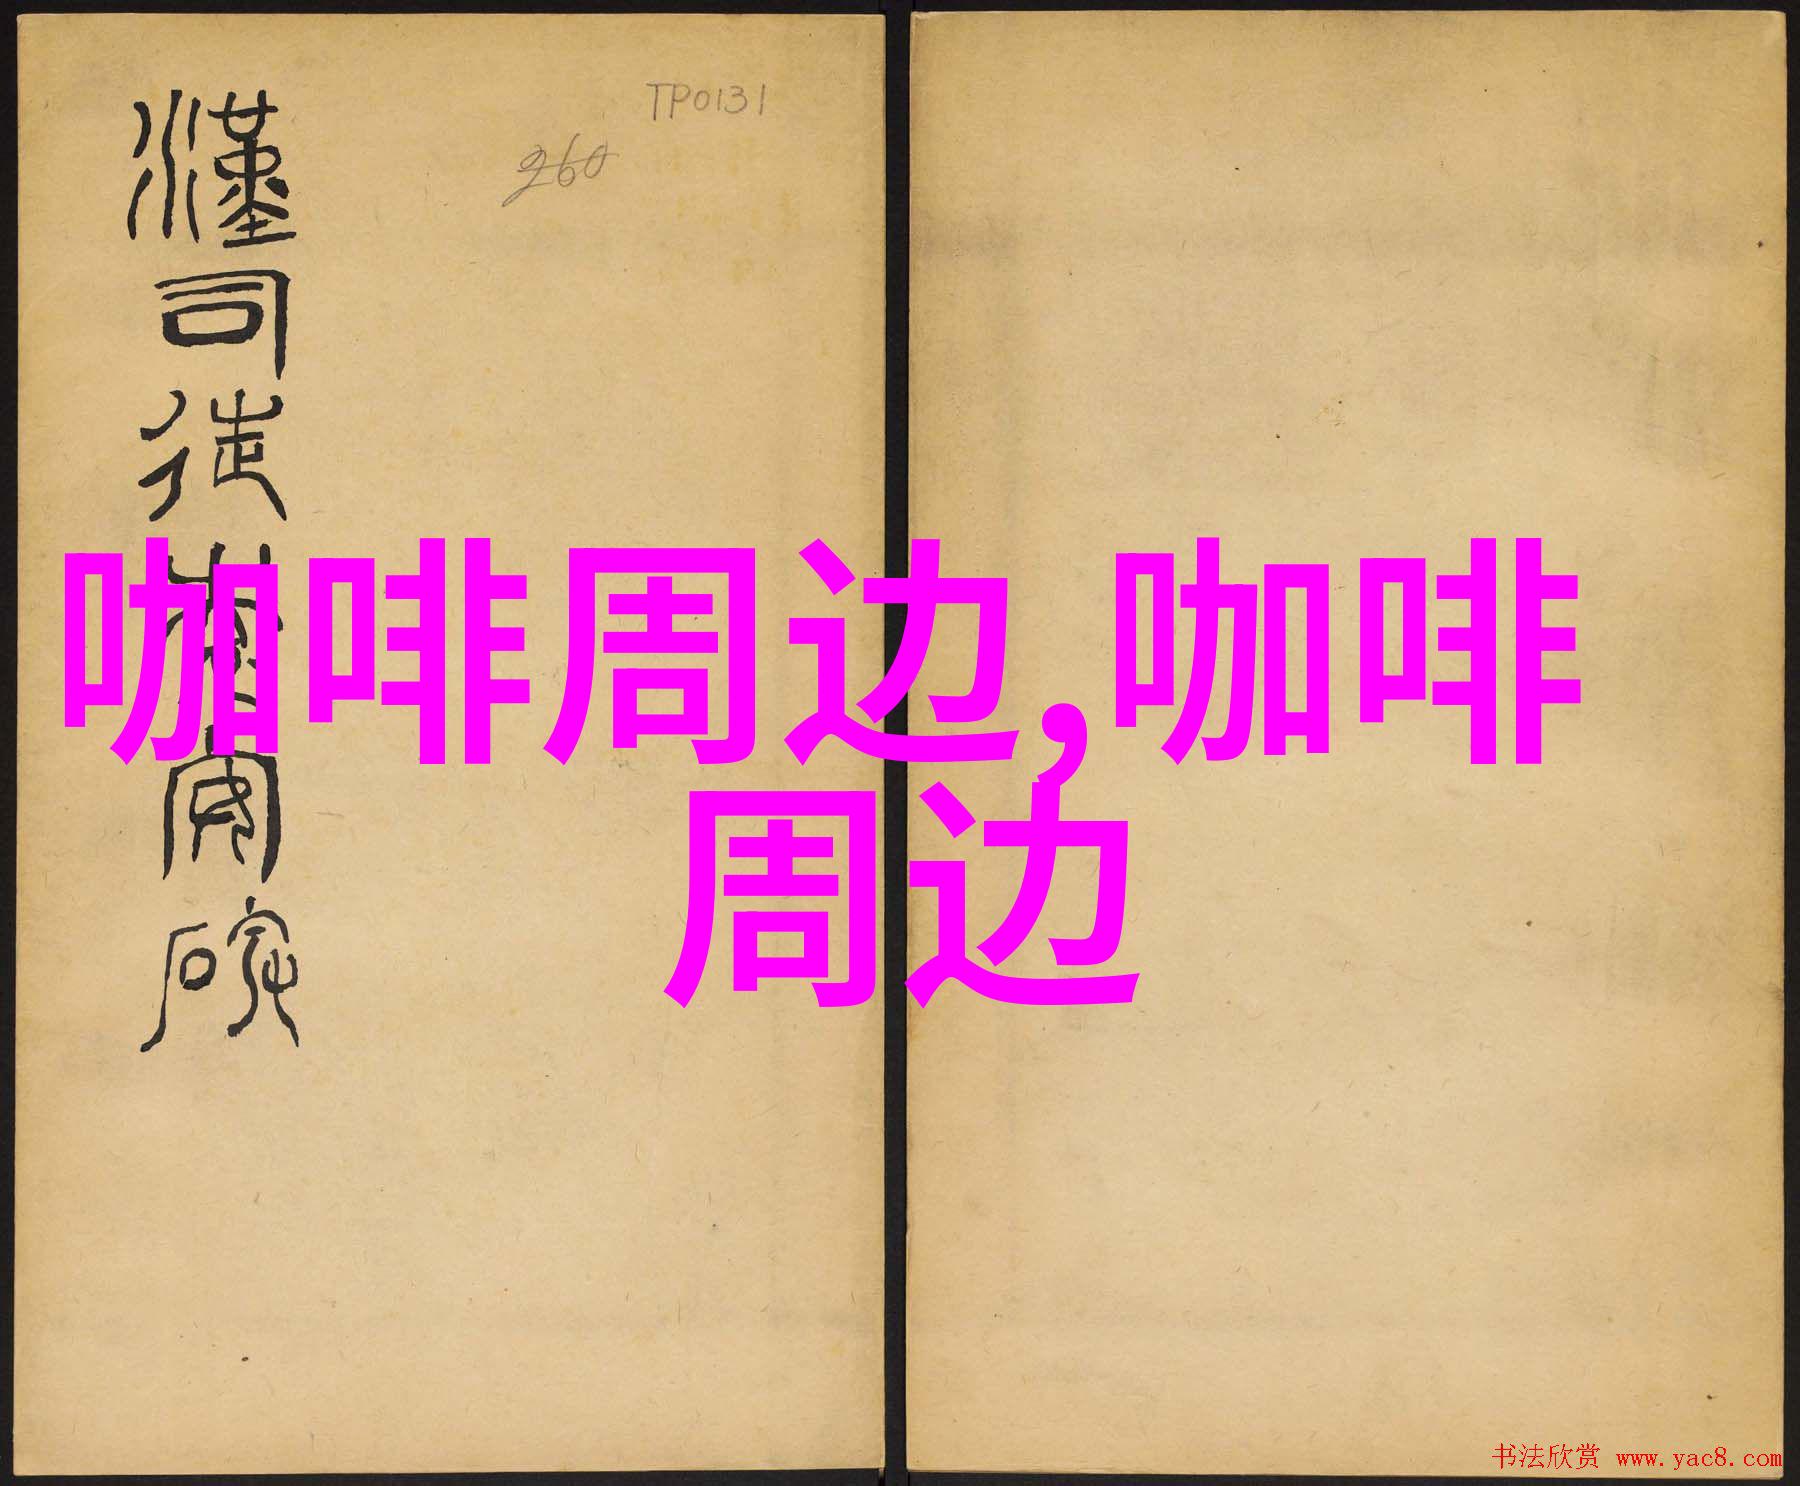 TP0131
260
漢司徒袁安碑
咖啡周边,咖啡
周边
书法欣赏 www.yac8.com